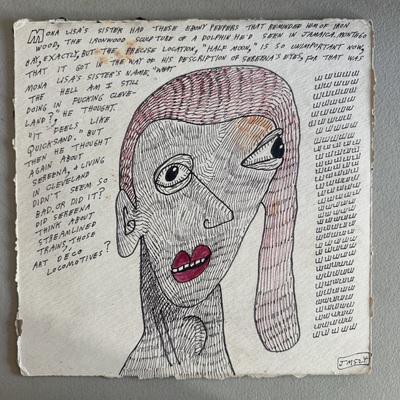 MONA LISA'S SISTER HAD THESE EBONY PEEPERS THAT REMINDED HIM OF IRON
WOOD, THE IRONWOOD SCULPTURE OF A DOLPHIN HE'D SEEN IN JAMAICA, MONTEGO
BAY, EXACTLY, BUT THE PRECISE LOCATION, "HALF MOON," IS SO UNIMPORTANT NOW,
THAT IT GOT IN THE WAY OF HIS DESCRIPTION OF SEREENA'S EYES, FOR THAT WAS
MONA LISA'S SISTER'S NAME, "WHAT
THE HELL AM I STILL
DOING IN FUCKING CLEVE-
LAND?," HE THOUGHT.
"IT FEELS LIKE
QUICKSAND." BUT
THEN HE THOUGHT
AGAIN ABOUT
SEREENA, & LIVING
IN CLEVELAND
DIDN'T SEEM SO
BAD. OR DID IT?
DID SEREENA
THINK ABOUT
STREAMLINED
TRAINS, THOSE
ART DECO
LOCOMOTIVES?